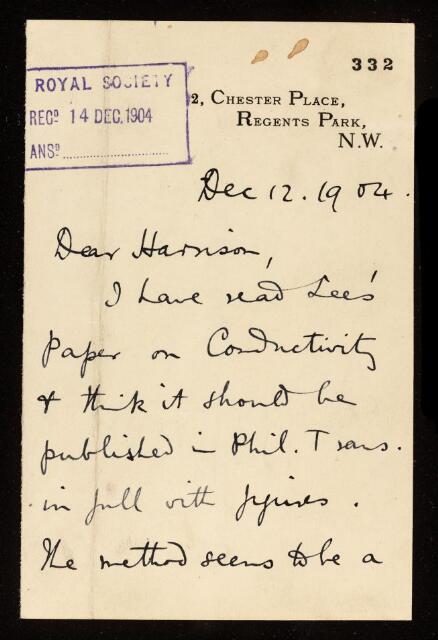 332
ROYAL SOCIETY
RECD 14 DEC.1904
ANSD
2, CHESTER PLACE,
REGENTS PARK,
N.W.
Dec 12. 1904.
Dear Harrison,
I have read Lee's
paper on Conductivity
& think it should be
published in Phil. Trans.
in full with figures.
The method seems to be a